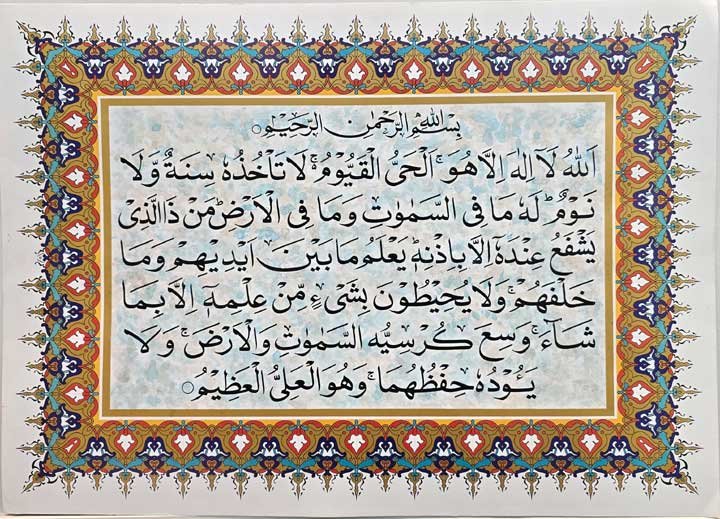 بِسْمِ اللهِ الرَّحْمٰنِ الرَّحِيْمِ
اَللّٰهُ لَآ اِلٰهَ اِلَّا هُوَ ۚ اَلْحَىُّ الْقَيُّوْمُ ۚ لَا تَاْخُذُهٗ سِنَةٌ وَّلَا
نَوْمٌ ؕ لَهٗ مَا فِى السَّمٰوٰتِ وَمَا فِى الْاَرْضِ ؕ مَنْ ذَا الَّذِىْ
يَشْفَعُ عِنْدَهٗٓ اِلَّا بِاِذْنِهٖ ؕ يَعْلَمُ مَا بَيْنَ اَيْدِيْهِمْ وَمَا
خَلْفَهُمْ ۚ وَلَا يُحِيْطُوْنَ بِشَىْءٍ مِّنْ عِلْمِهٖٓ اِلَّا بِمَا
شَآءَ ۚ وَسِعَ كُرْسِيُّهُ السَّمٰوٰتِ وَالْاَرْضَ ۚ وَلَا
يَـُٔوْدُهٗ حِفْظُهُمَا ۚ وَهُوَ الْعَلِىُّ الْعَظِيْمُ